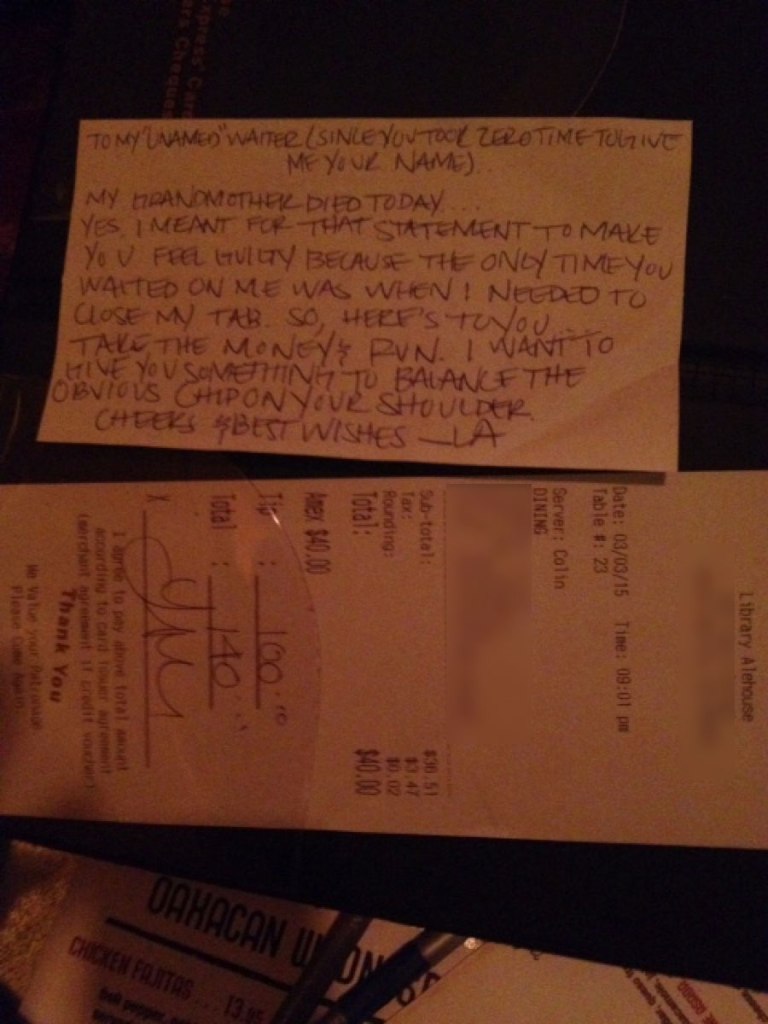 TO MY "UNAMED" WAITER (SINCE YOU TOOK ZERO TIME TO GIVE
ME YOUR NAME)..
MY GRANDMOTHER DIED TODAY...
YES, I MEANT FOR THAT STATEMENT TO MAKE
YOU FEEL GUILTY BECAUSE THE ONLY TIME YOU
WAITED ON ME WAS WHEN I NEEDED TO
CLOSE MY TAB. SO, HERE'S TO YOU.....
TAKE THE MONEY & RUN. I WANT TO
GIVE YOU SOMETHING TO BALANCE THE
OBVIOUS CHIP ON YOUR SHOULDER.
CHEERS & BEST WISHES —LA
Library Alehouse
Date: 03/03/15 Time: 09:01 pm
Table #: 23
Server: Colin
DINING
Sub-total: $36.51
Tax: $3.47
Rounding: $0.02
Total: $40.00
Amex $40.00
Tip : 100
Total : 140
X
I agree to pay above total amount
according to card issuer agreement
(merchant agreement if credit voucher)
Thank You
We Value your Patronage
Please Come Again
OAXACAN
CHICKEN FAJITAS ... 13.95
Bell pepper,